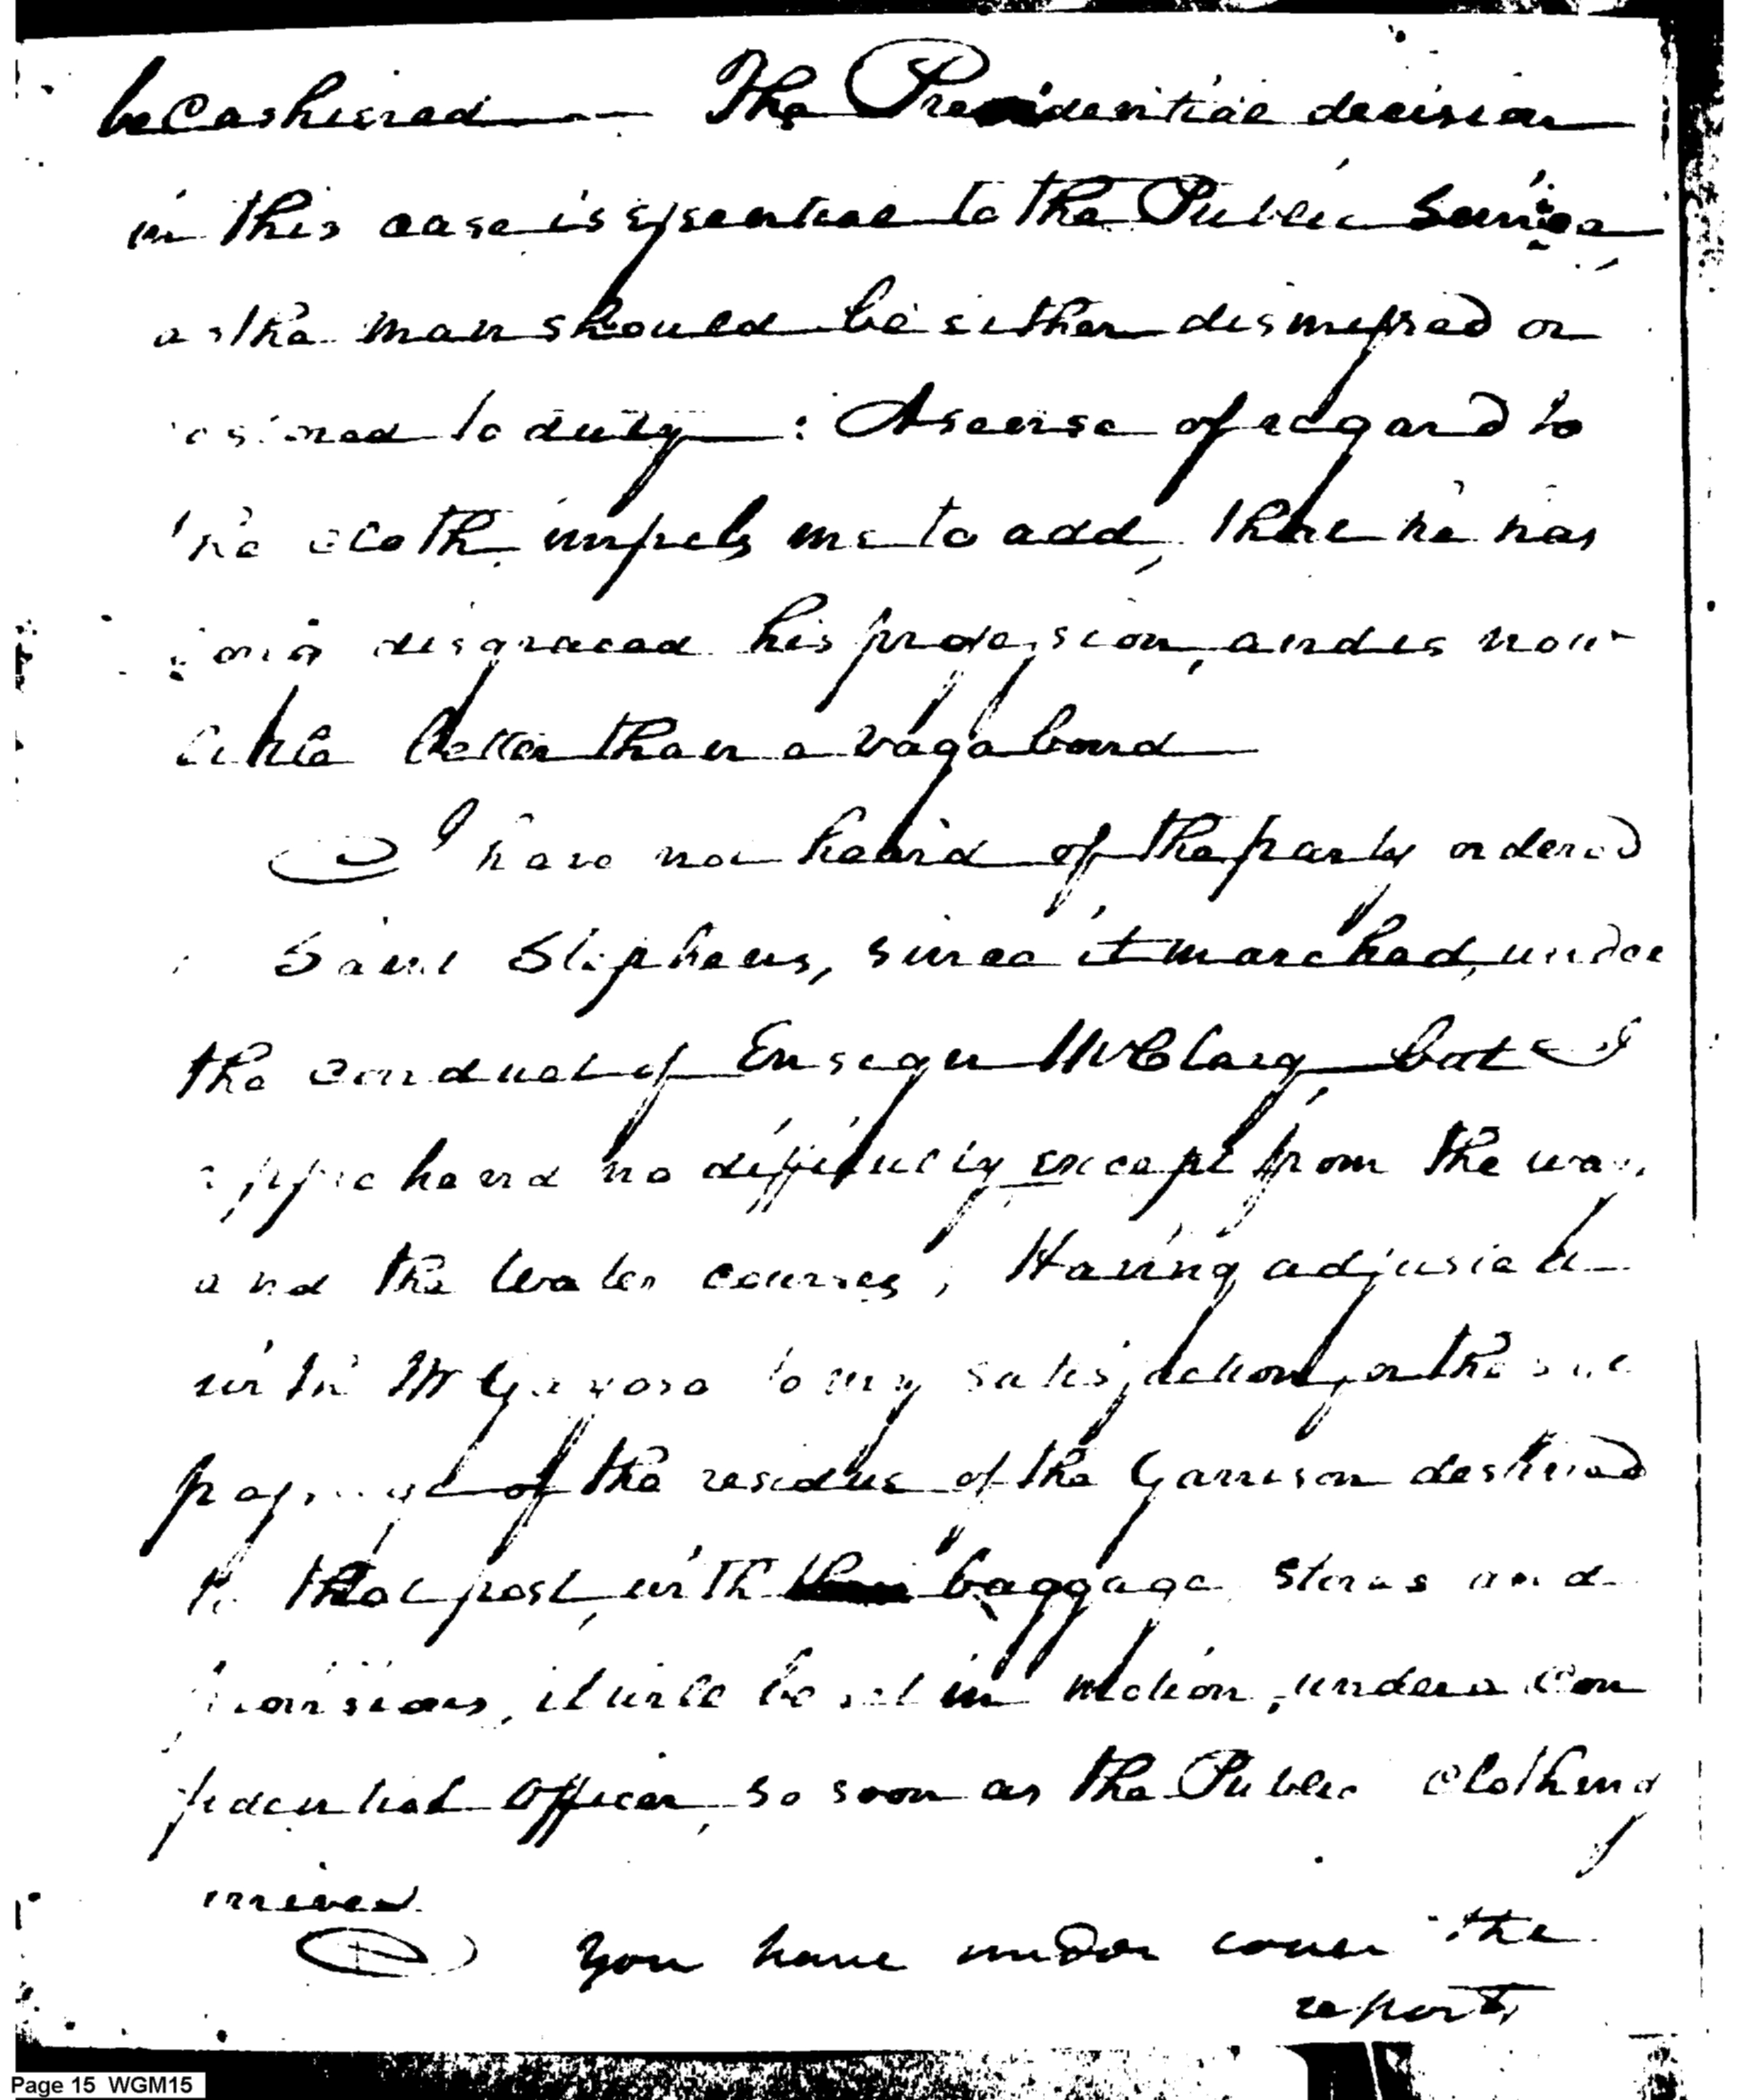 be Cashiered — The Presidential decision
in this case is essential to the Public Service,
as the man should be either dismissed or
restored to duty : A sense of regard to
the cloth impels me to add, that he has
long disgraced his profession, and is now
little better than a vagabond
I have not heard of the party ordered
Saint Stephens, since it marched, under
the conduct of Ensign McClary, but I
apprehend no difficulty except from the
and the Water courses; Having adjusted
with Mr Gayoso to my satisfaction, for the
passage of the residue of the Garrison destined
to that post, with baggage stores and
provisions, it will be set in motion, under a Con
fidential Officer, so soon as the Public clothing
arrives
You have under cover the
reports
Page 15 WGM15